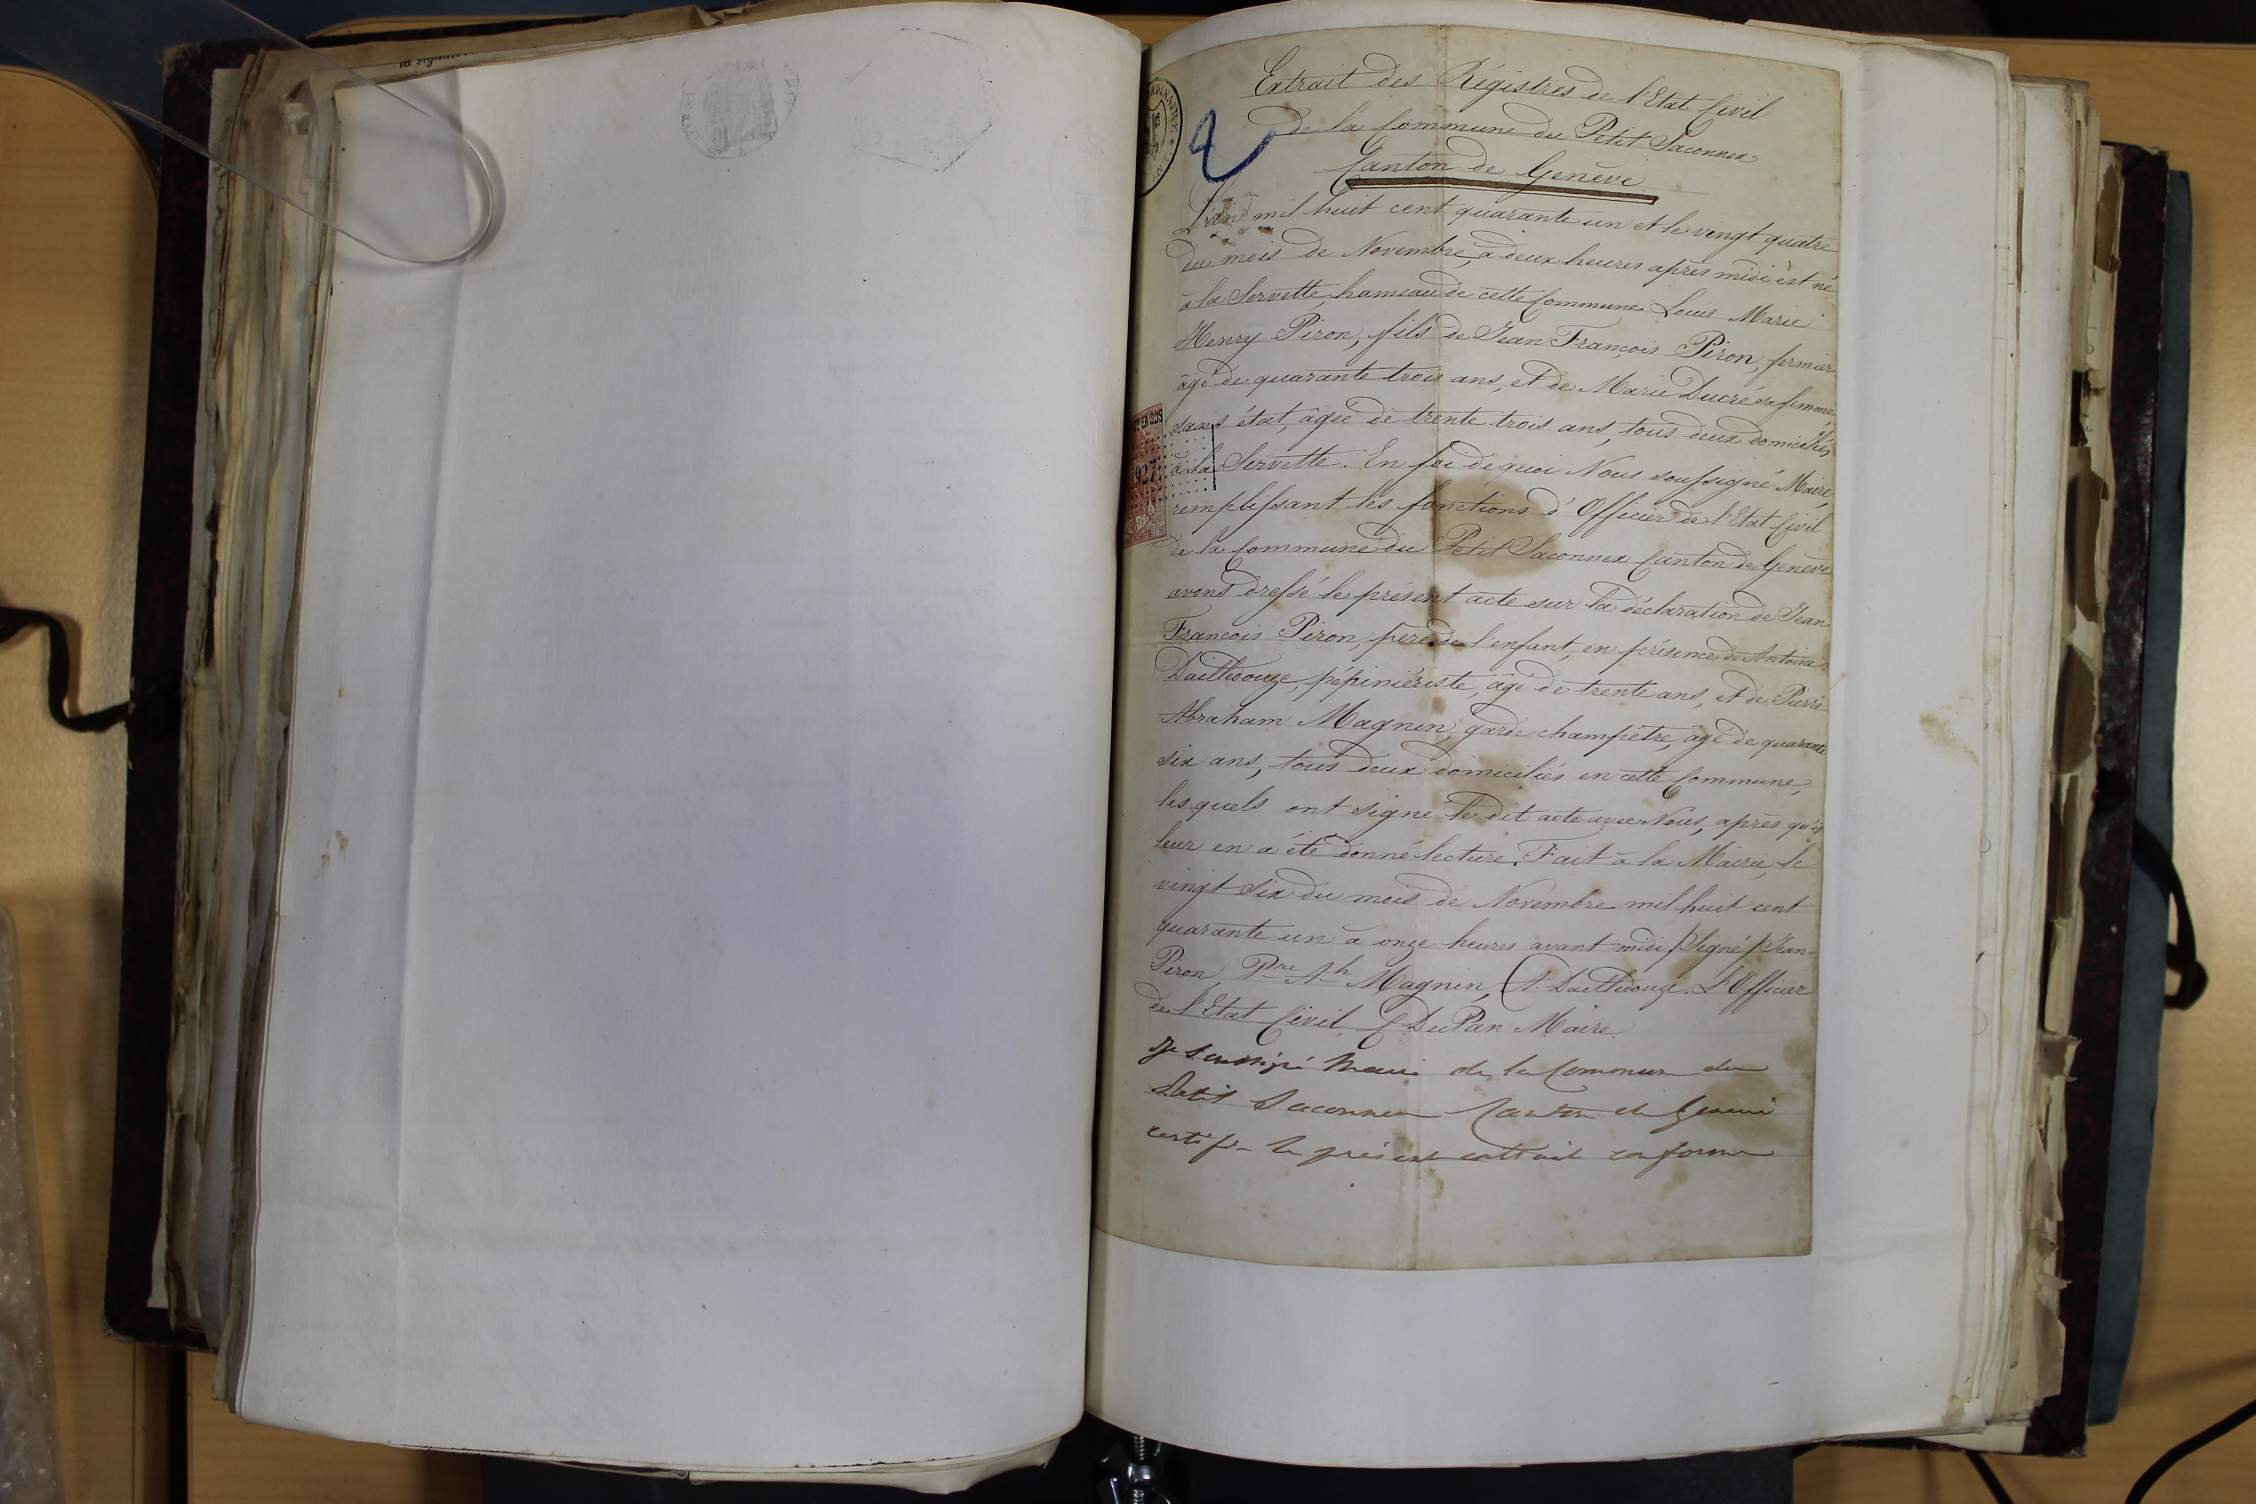 Extrait des Régistres de l'Etat Civil
de la Commune du Petit Saconnex
Canton de Genève
L'an mil huit cent quarante un et le vingt quatre
du mois de Novembre, à deux heures après midi est né
à la Servette hameau de cette Commune Louis Marie
Henry Piron, fils de Jean François Piron, fermier
âgé de quarante trois ans, et de Marie Ducré sa femme,
sans état, âgée de trente trois ans, tous deux domiciliés
à la Servette. En foi de quoi Nous soussigné Maire,
remplissant les fonctions d'Officier de l'Etat Civil
de la Commune du Petit Saconnex Canton de Genève
avons dressé le présent acte sur la déclaration de Jean
François Piron, père de l'enfant, en présence de Antoine
Dailledouze, pépiniériste, âgé de trente ans, et de Pierre
Abraham Magnin, garde champêtre, âgé de quarante
six ans, tous deux domiciliés en cette Commune,
lesquels ont signé le dit acte avec Nous, après qu'il
leur en a été donné lecture. Fait à la Mairie, le
vingt six du mois de Novembre mil huit cent
quarante un à onze heures avant midi /Signé/ Jean
Piron, Pre Ah Magnin, A. Dailledouze. L'Officier
de l'Etat Civil, DuPan Maire.
Je soussigné Maire de la Commune du
Petit Saconnex Canton de Genève
certifie le présent extrait conforme
927